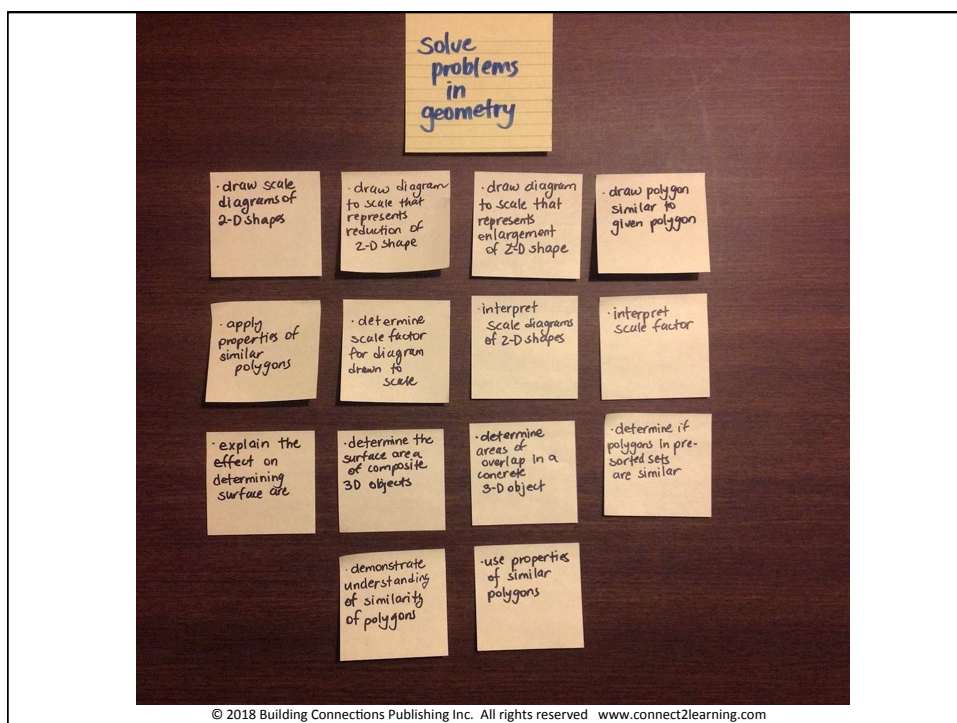 solve
problems
in
geometry
· draw scale
diagrams of
2-D shapes
· draw diagram
to scale that
represents
reduction of
2-D shape
· draw diagram
to scale that
represents
enlargement
of 2-D shape
· draw polygon
similar to
given polygon
· apply
properties of
similar
polygons
· determine
scale factor
for diagram
drawn to
scale
· interpret
scale diagrams
of 2-D shapes
· interpret
scale factor
· explain the
effect on
determining
surface are
· determine the
surface area
of composite
3D objects
· determine
areas of
overlap in a
concrete
3-D object
· determine if
polygons in pre-
sorted sets
are similar
· demonstrate
understanding
of similarity
of polygons
· use properties
of similar
polygons
© 2018 Building Connections Publishing Inc. All rights reserved www.connect2learning.com